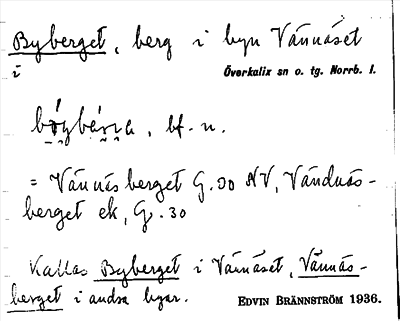 Byberget, berg i byn Vännäset
i Överkalix sn o. tg. Norrb. l.
bf. n.
= Vännäsberget G. 30 NV, Vändnäs-
berget ek, G. 30
Kallas Byberget i Vännäset, Vännäs-
berget i andra byar. EDVIN BRÄNNSTRÖM 1936.